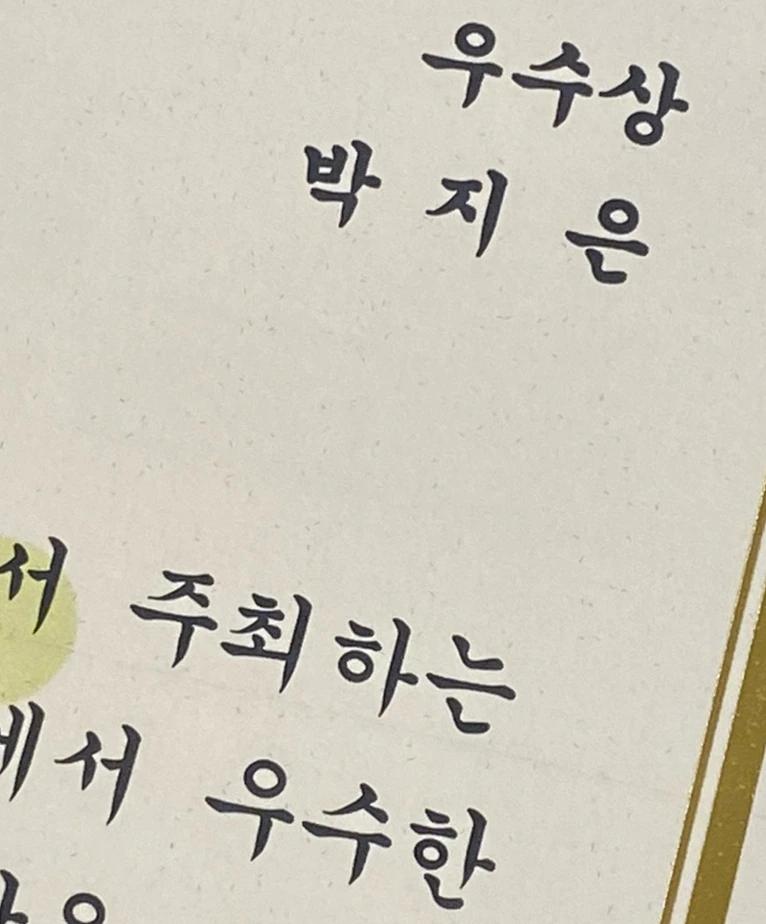 우수상
박 지 은
서 주최하는
에서 우수한